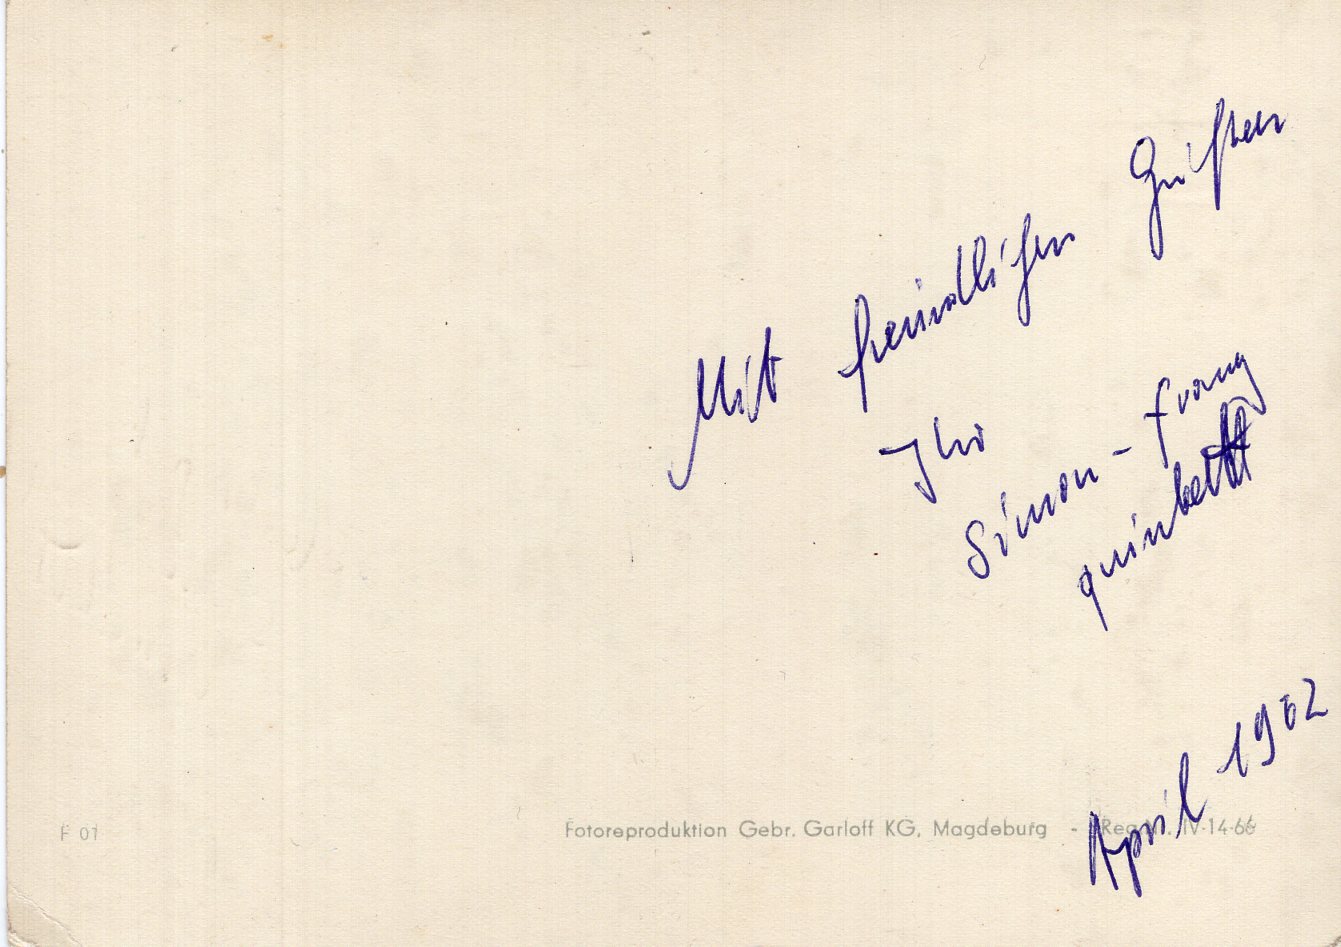 Mit freundlichen Grüßen
Ihr
Simon-Franz
quintett
April 1962
F 01
Fotoreproduktion Gebr. Garloff KG, Magdeburg - Reg.Nr. IV-14-66